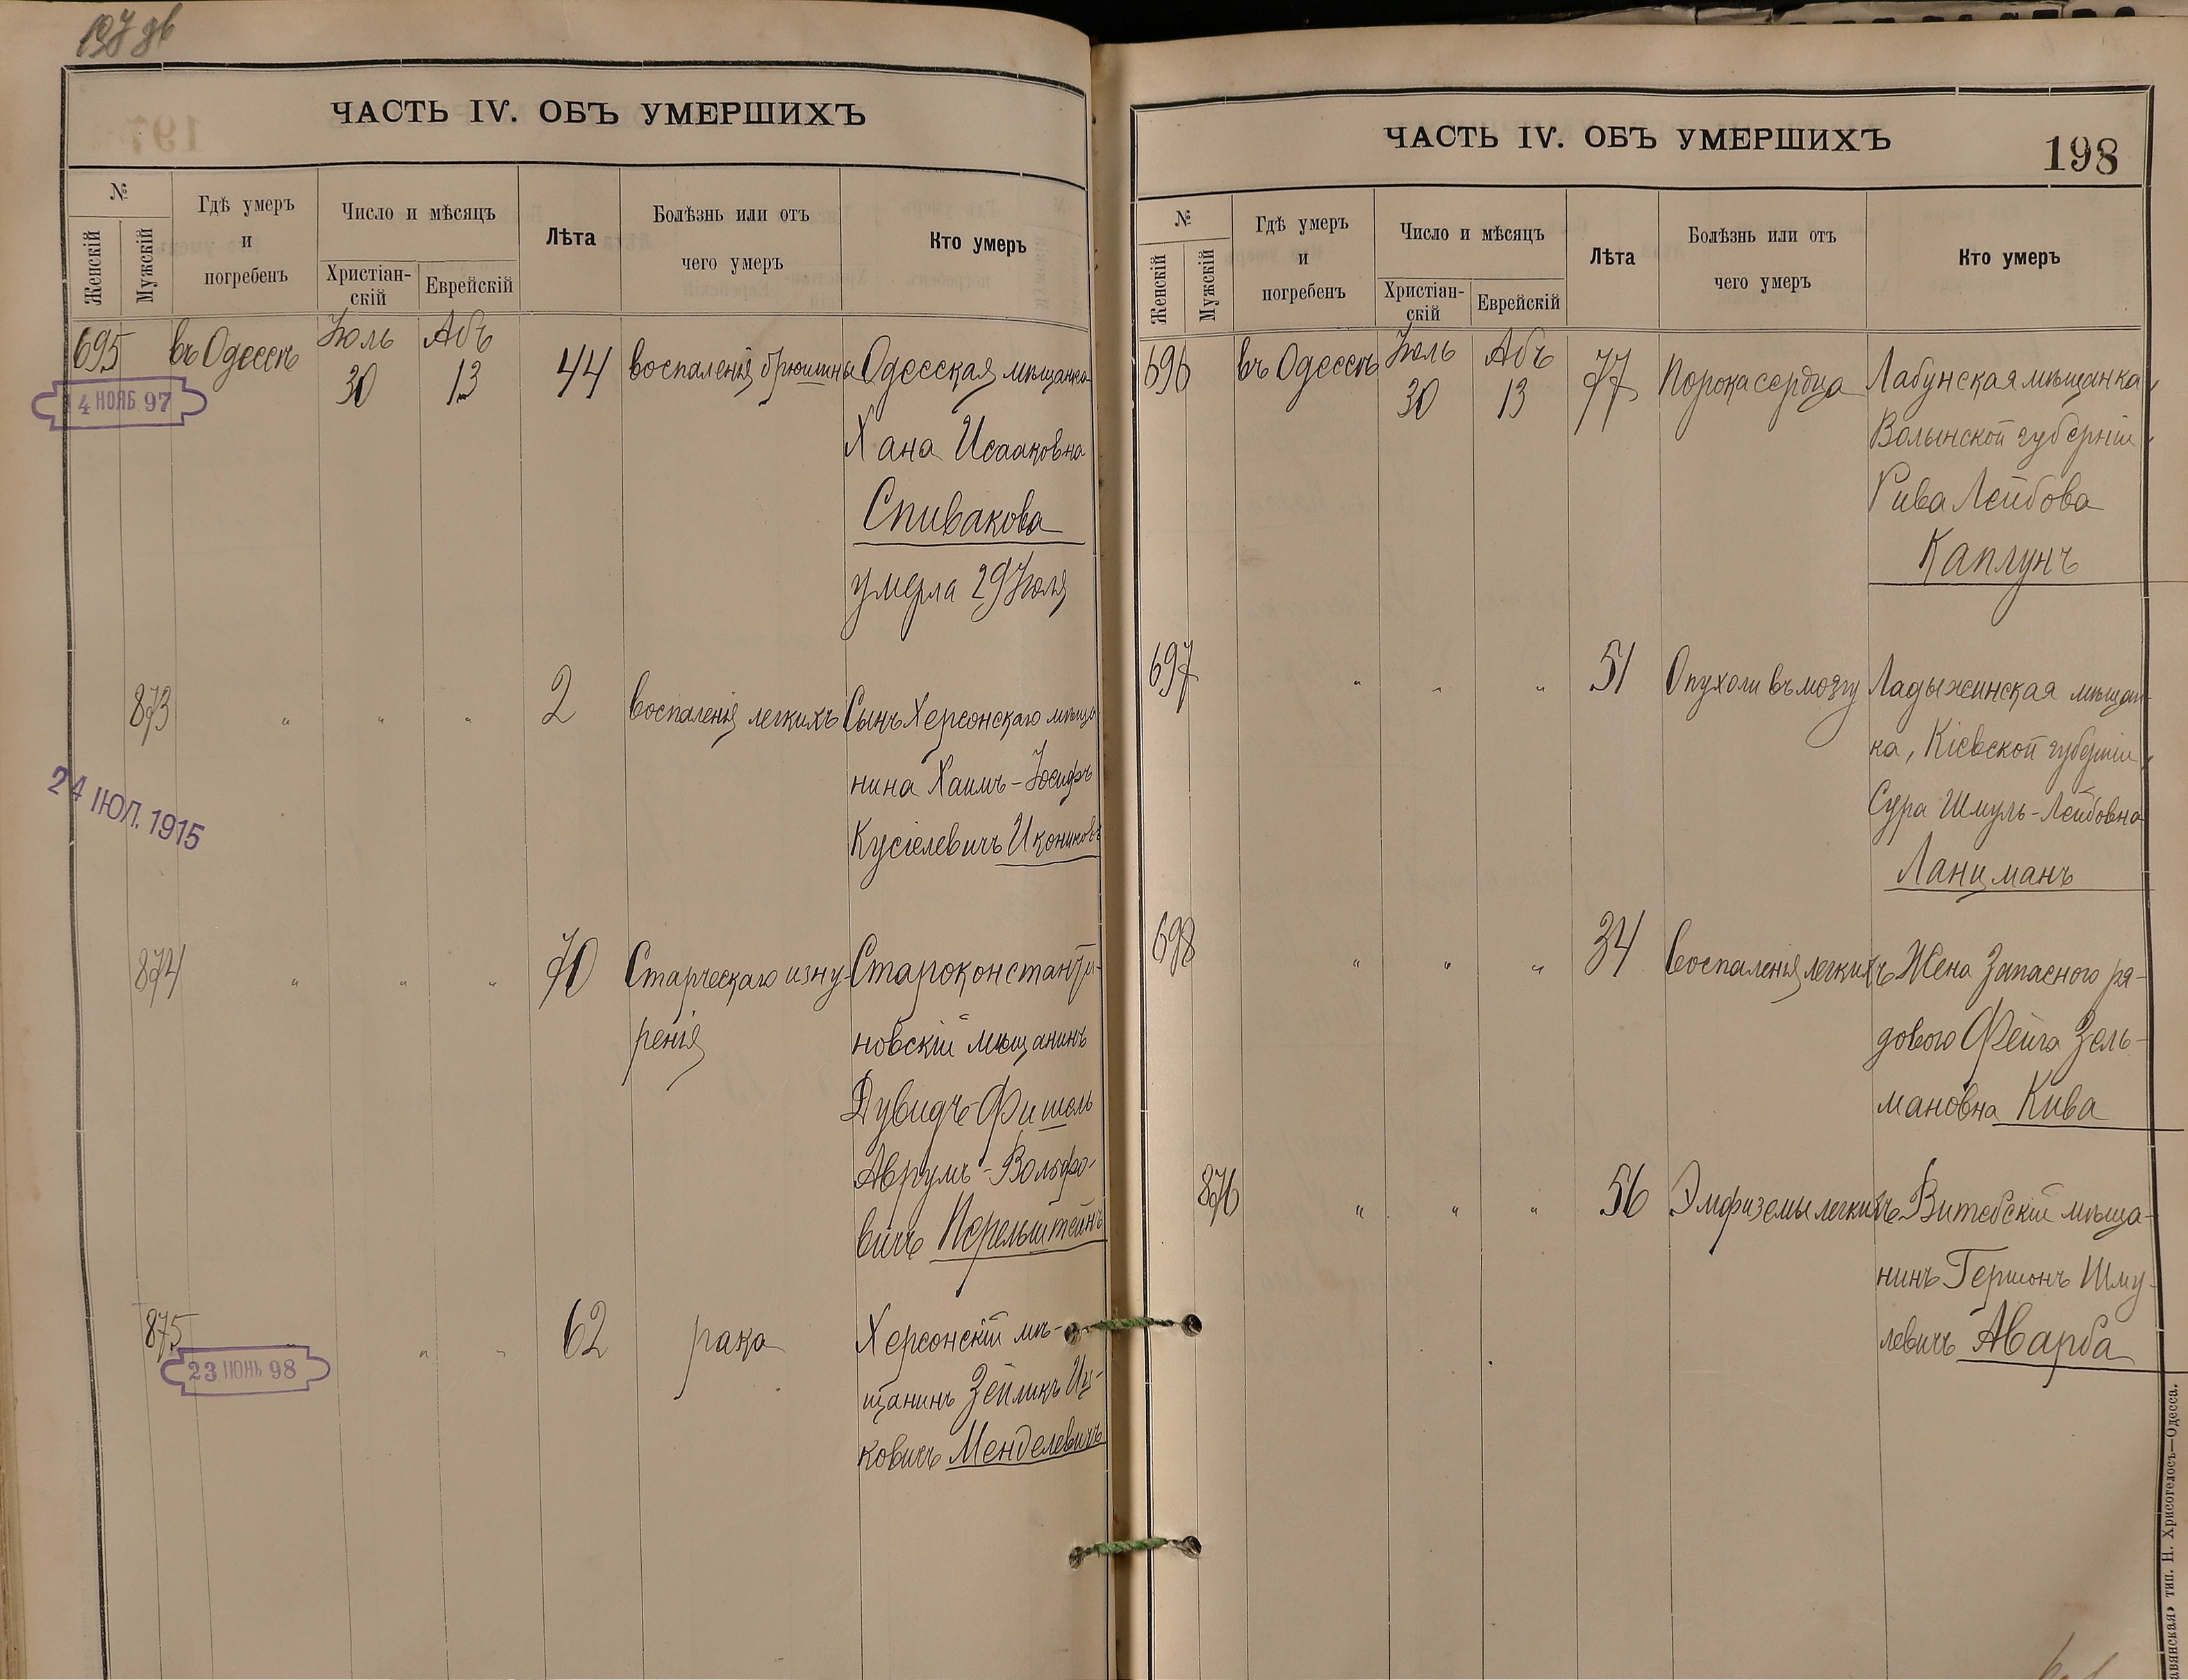 ЧАСТЬ IV. ОБЪ УМЕРШИХЪ
№
Женскій
Мужскій
Гдѣ умеръ
и
погребенъ
Число и мѣсяцъ
Христіан-
скій
Еврейскій
Лѣта
Болѣзнь или отъ
чего умеръ
Кто умеръ
695 въ Одессѣ Іюль 30 Абъ 13 44 воспаленія брюшины Одесская мѣщанка
4 НОЯБ 97
Хана Исааковна
Спивакова
умерла 29 Іюля
873 " " " 2 воспаленія легкихъ Сынъ Херсонскаго мѣща
нина Хаимъ-Іосифъ
Кусіелевичъ Икониковъ
24 ІЮЛ. 1915
874 " " " 70 Старческаго изну Староконстанти-
ренія новскій мѣщанинъ
Дувидъ-Фишель
Аврумъ-Вольфо-
вичъ Перельштейнъ
875 " " " 62 рака Херсонскій мѣ-
23 ІЮНЬ 98
щанинъ Зейликъ Иц-
ковичъ Менделевичъ
ЧАСТЬ IV. ОБЪ УМЕРШИХЪ
198
№
Женскій
Мужскій
Гдѣ умеръ
и
погребенъ
Число и мѣсяцъ
Христіан-
скій
Еврейскій
Лѣта
Болѣзнь или отъ
чего умеръ
Кто умеръ
696 въ Одессѣ Іюль 30 Абъ 13 77 Порока сердца Лабунская мѣщанка,
Волынской губерніи,
Рива Лейбова
Каплунъ
697 " " " 51 Опухоли въ мозгу Ладыжинская мѣщан-
ка, Кіевской губерніи,
Сура Шмуль-Лейбовна
Ланцманъ
698 " " " 34 воспаленія легкихъ Жена Запасного ря-
дового Фейга Зель-
мановна Кива
876 " " " 56 Эмфиземы легкихъ Витебскій мѣща-
нинъ Гершонъ Шму-
левичъ Аварба
тип. Н. Хрисогелосъ—Одесса.